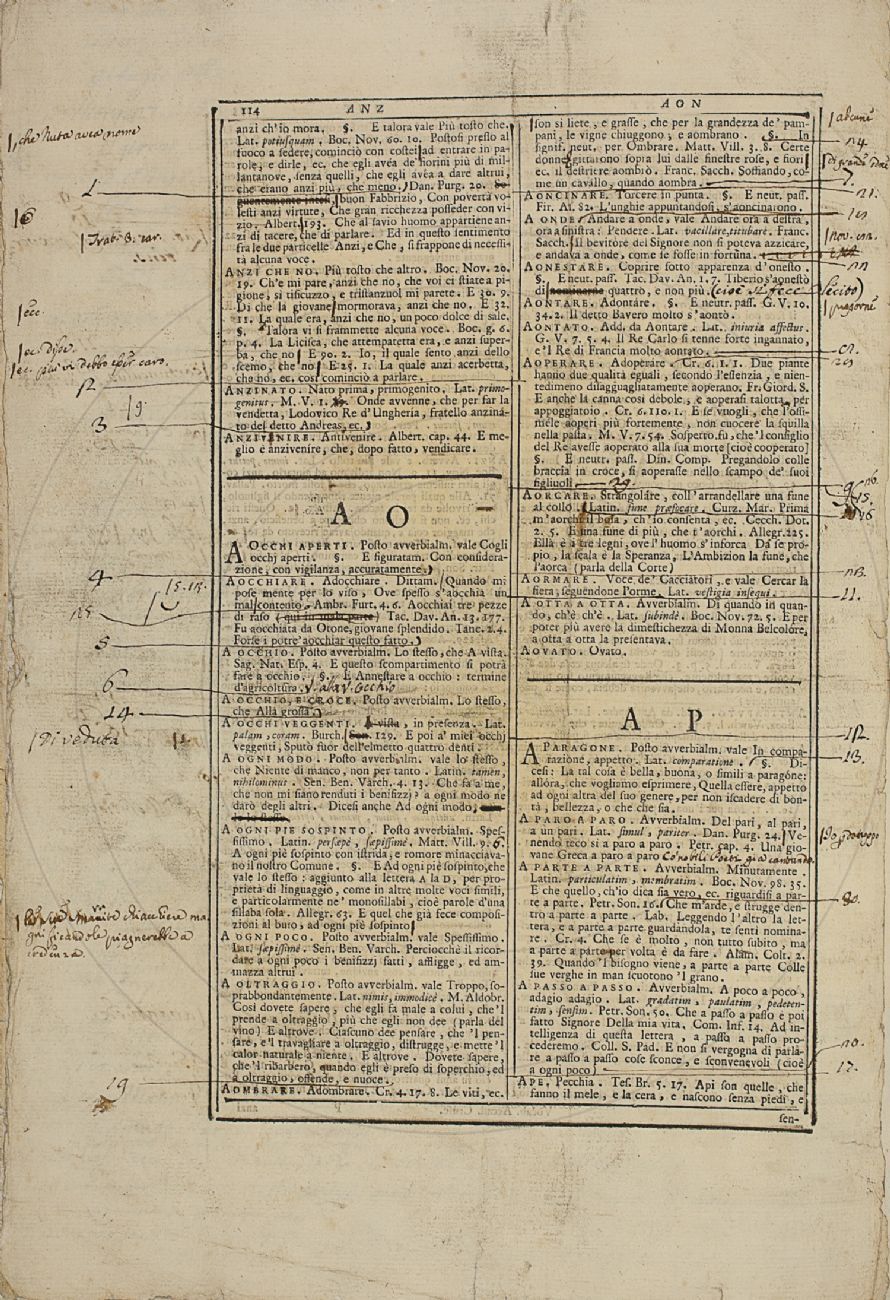 114
ANZ
AON
anzi ch'io mora. §. E talora vale Più tosto che.
Lat. potiusquam. Boc. Nov. 60. 10. Postosi presso al
fuoco a sedere, cominciò con costei ad entrare in pa-
role, e dirle, ec. che egli avéa de' fiorini più di mil-
lantanove, senza quelli, che egli avéa a dare altrui,
che erano anzi più, che meno. Dan. Purg. 20.
buon Fabbrizio, Con povertà vo-
lesti anzi virtute, Che gran ricchezza posseder con vi-
zio. Albert. 193. Che al savio huomo appartiene an-
zi di tacere, che di parlare. Ed in questo sentimento
fra le due particelle Anzi, e Che, si frappone di necessi-
tà alcuna voce.
ANZI CHE NO. Più tosto che altro. Boc. Nov. 20.
19. Ch'e mi pare, anzi che no, che voi ci stiate a pi-
gione, sì tisicuzzo, e tristanzuol mi parete. E 30. 9.
Di che la giovane mormorava, anzi che no. E 32.
11. La quale era, anzi che no, un poco dolce di sale.
§. Talora vi si frammette alcuna voce. Boc. g. 6.
p. 4. La Licisca, che attempatetta era, e anzi super-
ba, che no E 90. 2. Io, il quale sento anzi dello
scemo, che no E 25. 1. La quale anzi acerbetta,
che no, ec. così cominciò a parlare.
ANZINATO. Nato prima, primogenito. Lat. primo-
genitus. M. V. 1. Onde avvenne, che per far la
vendetta, Lodovico Re d'Ungheria, fratello anzina-
to del detto Andreas, ec.
ANZIVENIRE. Antivenire. Albert. cap. 44. E me-
glio è anzivenire, che, dopo fatto, vendicare.
A O
A OCCHI APERTI. Posto avverbialm. vale Cogli
occhj aperti. §. E figuratam. Con considera-
zione, con vigilanza, accuratamente.
AOCCHIARE. Adocchiare. Dittam. Quando mi
pose mente per lo viso, Ove spesso s'aocchia un
mal contento. Ambr. Furt. 4. 6. Aocchiai tre pezze
di raso (qui in mala parte) Tac. Dav. An. 13. 177.
Fu aocchiata da Otone, giovane splendido. Tanc. 2. 4.
Forse i potre' aocchiar questo fatto.
A OCCHIO. Posto avverbialm. Lo stesso, che A vista.
Sag. Nat. Esp. 4. E questo scompartimento si potrà
fare a occhio. §. E Annestare a occhio: termine
d'agricoltura. V. a la V. Occhio
A OCCHIO, E CROCE. Posto avverbialm. Lo stesso,
che Alla grossa.
A OCCHI VEGGENTI. A vista, in presenza. Lat.
palam, coram. Burch. 129. E poi a' miei occhj
veggenti, Sputò fuor dell'elmetto quattro denti.
A OGNI MODO. Posto avverbialm. vale lo stesso,
che Niente di manco, non per tanto. Latin. tamen,
nihilominus. Sen. Ben. Varch. 4. 13. Che fa a me,
che non mi siano renduti i benifizj? a ogni modo ne
darò degli altri. Dicesi anche Ad ogni modo.
A OGNI PIE SOSPINTO. Posto avverbialm. Spes-
sissimo. Latin. persæpè, sæpissimè. Matt. Vill. 9. 6.
A ogni piè sospinto con istrida, e romore minacciava-
no il nostro Comune. §. E Ad ogni piè sospinto, che
vale lo stesso: aggiunto alla lettera A la D, per pro-
prietà di linguaggio, come in altre molte voci simili,
e particolarmente ne' monosillabi, cioè parole d'una
sillaba sola. Allegr. 63. E quel che già fece composi-
zioni al buio, ad ogni piè sospinto
A OGNI POCO. Posto avverbialm. vale Spessissimo.
Lat. sæpissimè. Sen. Ben. Varch. Perciocchè il ricor-
dare a ogni poco i benifizzj fatti, affligge, ed am-
mazza altrui.
A OLTRAGGIO. Posto avverbialm. vale Troppo, so-
prabbondantemente. Lat. nimis, immodicè. M. Aldobr.
Così dovete sapere, che egli fa male a colui, che 'l
prende a oltraggio, più che egli non dee (parla del
vino) E altrove. Ciascuno dee pensare, che 'l pen-
sare, e 'l travagliare a oltraggio, distrugge, e mette 'l
calor naturale a niente. E altrove. Dovete sapere,
che 'l ribarbero, quando egli è preso di soperchio, ed
a oltraggio, offende, e nuoce.
AOMBRARE. Adombrare. Cr. 4. 17. 8. Le viti, ec.
son sì liete, e grasse, che per la grandezza de' pam-
pani, le vigne chiuggono, e aombrano. §. In
signif. neut. per Ombrare. Matt. Vill. 3. 8. Certe
donne gittarono sopra lui dalle finestre rose, e fiori
ec. il destriere aombrò. Franc. Sacch. Soffiando, co-
me un cavallo, quando aombra.
AONCINARE. Torcere in punta. §. E neut. pass.
Fir. As. 82. L'unghie appuntandosi, s'aoncinarono.
A ONDE. Andare a onde, vale Andare ora a destra,
ora a sinistra: Pendere. Lat. vacillare, titubare. Franc.
Sacch. Il bevitore del Signore non si poteva azzicare,
e andava a onde, come se fosse in fortuna.
AONESTARE. Coprire sotto apparenza d'onesto.
§. E neut. pass. Tac. Dav. An. 1. 7. Tiberio s'aonestò
di nominarne quattro, e non più (cioè si fece lecito)
AONTARE. Adontare. §. E neutr. pass. G. V. 10.
34. 2. Il detto Bavero molto s'aontò.
AONTATO. Add. da Aontare. Lat. iniuria affectus.
G. V. 7. 5. 4. Il Re Carlo si tenne forte ingannato,
e 'l Re di Francia molto aontato.
AOPERARE. Adoperare. Cr. 6. 1. 1. Due piante
hanno due qualità eguali, secondo l'essenzia, e nien-
tedimeno disagguagliatamente aoperano. Fr. Giord. S.
E anche la canna così debole, e aoperasi talotta, per
appoggiatoio. Cr. 6. 110. 1. E se vuogli, che l'ossi-
mele aoperi più fortemente, non cuocere la squilla
nella pasta. M. V. 7. 54. Sospetto fu, che 'l consiglio
del Re avesse aoperato alla sua morte [cioè cooperato]
§. E neutr. pass. Din. Comp. Pregandolo colle
braccia in croce, si aoperasse nello scampo de' suoi
figliuoli.
AORCARE. Strangolare, coll'arrandellare una fune
al collo. Latin. fune præfocare. Curz. Mar. Prima
m'aorchi il boia, ch'io consenta, ec. Cecch. Dot.
2. 5. E una fune di più, che t'aorchi. Allegr. 225.
Ella è a tre legni, ove l'huomo s'inforca Da se pro-
pio, la scala è la Speranza, L'Ambizion la fune, che
l'aorca (parla della Corte)
AORMARE. Voce de' Cacciatori, e vale Cercar la
fiera, seguendone l'orme. Lat. vestigia insequi.
A OTTA A OTTA. Avverbialm. Di quando in quan-
do, ch'è ch'è. Lat. subindè. Boc. Nov. 72. 5. E per
poter più avere la dimestichezza di Monna Belcolore,
a otta a otta la presentava.
AOVATO. Ovato.
A P
A PARAGONE. Posto avverbialm. vale In compa-
razione, appetto. Lat. comparatione. §. Di-
cesi: La tal cosa è bella, buona, o simili a paragone:
allora, che vogliamo esprimere, Quella essere, appetto
ad ogni altra del suo genere, per non iscadere di bon-
tà, bellezza, o che che sia.
A PARO A PARO. Avverbialm. Del pari, al pari,
a un pari. Lat. simul, pariter. Dan. Purg. 24. Ve-
nendo teco sì a paro a paro. Petr. cap. 4. Una gio-
vane Greca a paro a paro Co nobili Poeti gia cantando.
A PARTE A PARTE. Avverbialm. Minutamente.
Latin. particulatim, membratim. Boc. Nov. 98. 35.
E che quello, ch'io dica sia vero, ec. riguardisi a par-
te a parte. Petr. Son. 16. Che m'arde, e strugge den-
tro a parte a parte. Lab. Leggendo l'altro la let-
tera, e a parte a parte guardandola, te sentì nomina-
re. Cr. 4. Che se è molto, non tutto subito, ma
a parte a parte per volta è da fare. Alam. Colt. 2.
39. Quando 'l bisogno viene, a parte a parte Colle
sue verghe in man scuotono 'l grano.
A PASSO A PASSO. Avverbialm. A poco a poco,
adagio adagio. Lat. gradatim, paulatim, pedeten-
tim, sensim. Petr. Son. 50. Che a passo a passo è poi
fatto Signore Della mia vita. Com. Inf. 14. Ad in-
telligenza di questa lettera, a passo a passo pro-
cederemo. Coll. S. Pad. E non si vergogna di parla-
re a passo a passo cose sconce, e sconvenevoli (cioè
a ogni poco)
APE. Pecchia. Tes. Br. 5. 17. Api son quelle, che
fanno il mele, e la cera, e nascono senza piedi, e
sen-
che Nuta avea nome
6
ec. disse
ec. più vi debbo esser caro.
12
9
3
4
5
6
14
Di veduta
19
7.
11.
12.
13.
17.